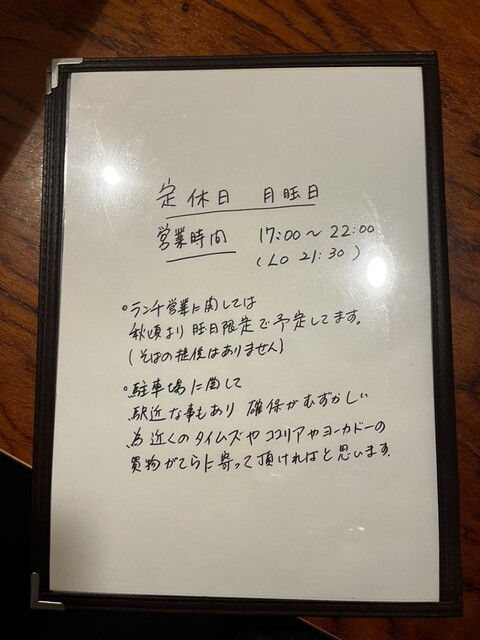 定休日 月曜日
営業時間 17:00～22:00
(LO 21:30)
○ランチ営業に関しては
秋頃より曜日限定で予定してます。
(そばの提供はありません)
○駐車場に関して
駅近な事もあり 確保がむずかしい
為 近くのタイムズや ココリアやヨーカドーの
買物がてらに寄って頂ければと思います。